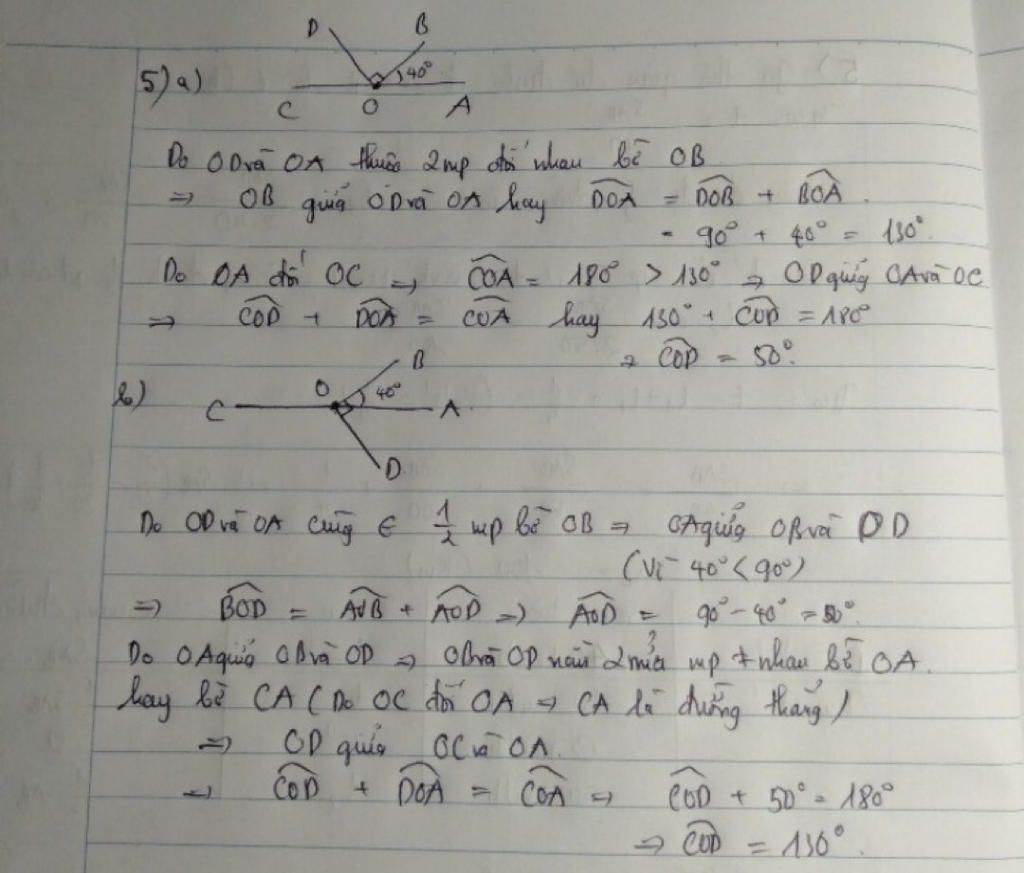 D B
5) a) 40°
C O A
Do OD và OA thuộc 2mp đối nhau bờ OB
=> OB giữa OD và OA hay DOA = DOB + BOA.
= 90° + 40° = 130°.
Do OA đối OC => COA = 180° > 130° => OD giữa OA và OC
=> COD + DOA = COA hay 130° + COD = 180°
=> COD = 50°.
b) C O B 40° A
D
Do OD và OA cùng ∈ 1/2 mp bờ OB => OA giữa OB và OD
(Vì 40° < 90°)
=> BOD = AOB + AOD => AOD = 90° - 40° = 50°.
Do OA giữa OB và OD => OB và OD nằm 2 nửa mp ≠ nhau bờ OA.
hay bờ CA (Do OC đối OA => CA là đường thẳng)
=> OD giữa OC và OA.
=> COD + DOA = COA => COD + 50° = 180°
=> COD = 130°.